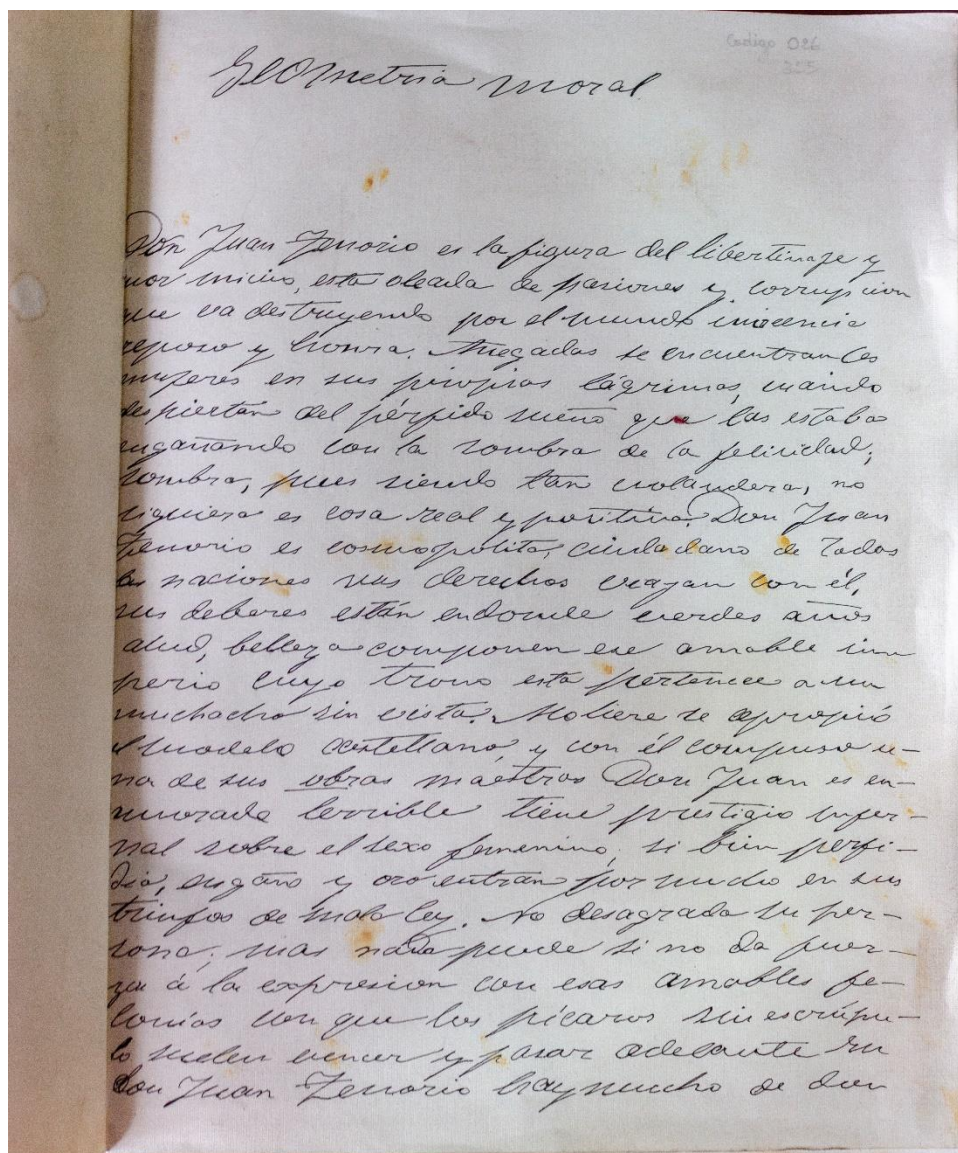 Codigo 026
355
Geometria moral
Don Juan Tenorio es la figura del libertinaje y
amor inicuo, esta oleada de pasiones y corrupcion
que va destruyendo por el mundo inocencia
reposo y honra. Anegadas se encuentran las
mujeres en sus propias lágrimas, cuando
despiertan del pérfido sueño que las estaba
engañando con la sombra de la felicidad;
sombra, pues siendo tan volandera, no
siquiera es cosa real y positiva. Don Juan
Tenorio es cosmopolita, ciudadano de todas
las naciones sus derechos viajan con él,
sus deberes están endonde verdes años
salud, belleza componen ese amable im
perio cuyo trono esta pertenece a un
muchacho sin vista. Moliere se apropió
el modelo castellano, y con él compuso u-
na de sus obras maestras Don Juan es en-
amorado terrible tiene prestigio infer-
nal sobre el sexo femenino, si bien perfi-
dia, engaño y oro entran por mucho en sus
triunfos de mala ley. No desagrada su per-
sona; mas nada puede si no da fuer-
za á la expresion con esas amables fe-
lonias con que los pícaros sin escrúpu-
lo suelen vencer y pasar adelante En
don Juan Tenorio hay mucho de don